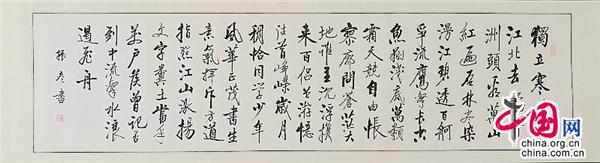 獨立寒
江北去
洲頭看萬山
紅遍層林盡染
漫江碧透百舸
爭流鷹擊長空
魚翔淺底萬類
霜天競自由悵
寥廓問蒼茫大
地誰主沉浮攜
來百侶曾游憶
往昔崢嶸歲月
稠恰同學少年
風華正茂書生
意氣揮斥方遒
指點江山激揚
文字糞土當年
萬戶侯曾記否
到中流擊水浪
遏飛舟
振 書
中国网
china.com.cn